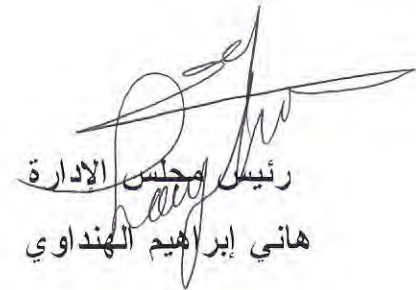 رئيس مجلس الإدارة
هاني إبراهيم الهنداوي